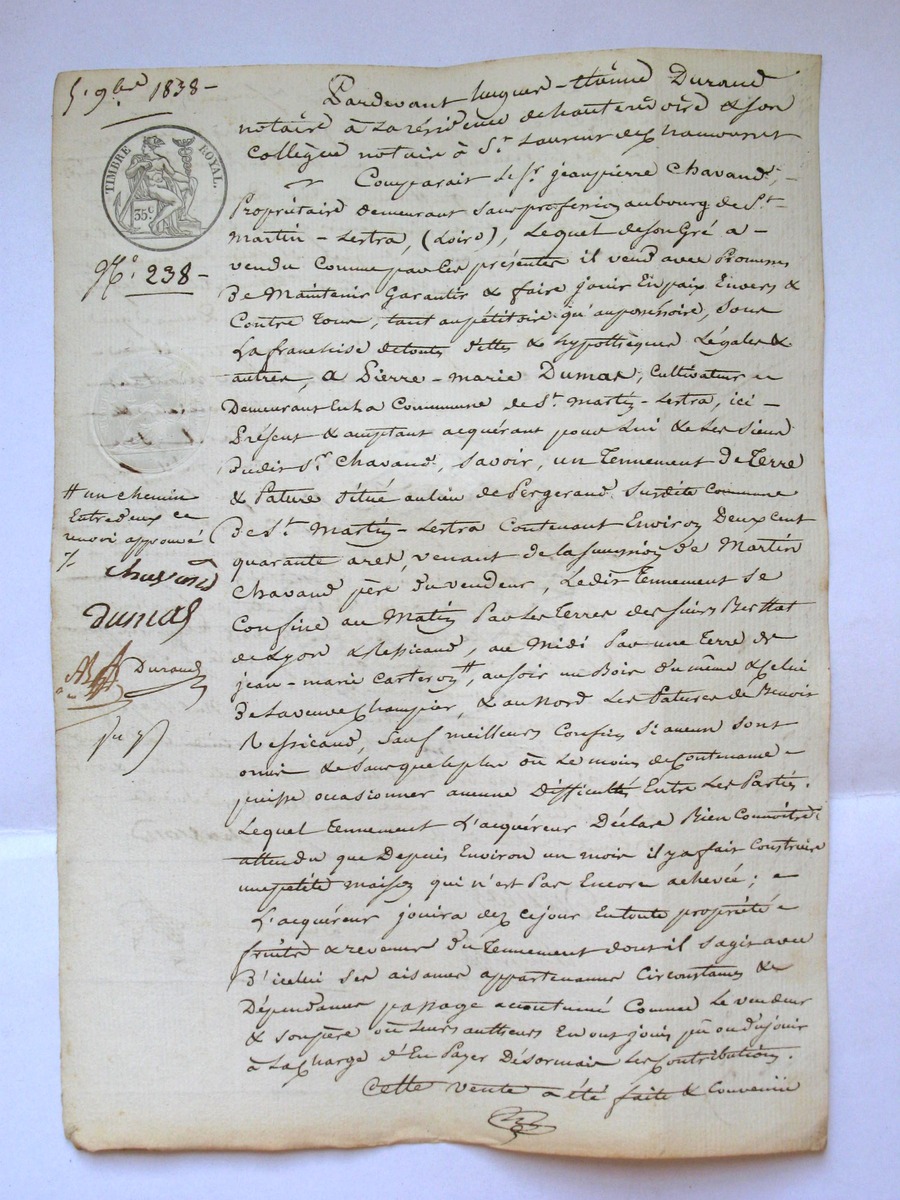 5. 9bre 1838 -
TIMBRE ROYAL.
35 c
N.° 238 -
Pardevant hugues - Etiènne Durand
notaire à la résidence de hauterivoire & son
Collègue notaire à St. Laurent de Chamousset
Comparait de Sr. jean pierre Chavand,
Propriétaire demeurant sans profession au bourg de St.
Martin - Lestra, (Loire), Lequel de son Gré a
vendu Comme par les présentes il vend avec Promesse
De Maintenir Garantir & faire jouir En paix Envers &
Contre Tous, tant au pétitoire qu'au possessoire, Sous
La franchise de toutes dettes & hypothèques Légales &
autres, a Pierre - marie Dumas, Cultivateur
Demeurant En La Commune de St. Martin - Lestra, ici -
Présent & acceptant acquérant pour Lui & Les Siens
Dudit Sr. Chavand, Savoir, un Tennement De Terre
& Pature Situé au lieu de Pergerand Susdite Commune
De St. Martin - Lestra Contenant Environ Deux Cent
quarante ares, venant de la Succession De Martin
Chavand père du vendeur, Ledit Tennement Se
Confine au Matin Par Les Terres des Sieurs Berthat
de Lyon & Ressicaud, au Midi Par une Terre de
jean - marie Carteron #, au soir un Bois du même & Celui
De La veuve Champier, & au Nord Les Patures de Benoit
Ressicaud, Sauf meilleurs Confins Si aucun sont
omis & Sans que le plus où Le moins de Contenance
puisse occasionner aucune Difficulté Entre Les Parties.
Lequel Tennement L'acquéreur Déclare Bien Connoître
attendu que Depuis Environ un mois il y a fait Construire
une petite maison qui n'est Pas Encore achevée;
L'acquéreur jouira dez ce jour En toute propriété
fruits & revenus du Tennement dont il s'agit avec
D'icelui Ses aisances appartenances Circonstances &
Dépendances passage accoutumé Comme Le vendeur
& son père où Leurs autheurs En ont joui pû ou dû jouir
à La Charge d'En Payer Désormais Les Contributions.
Cette vente a été faite & Convenüe
# un chemin
Entre deux
renvoi approuvé
Chavand
Dumas
Durand